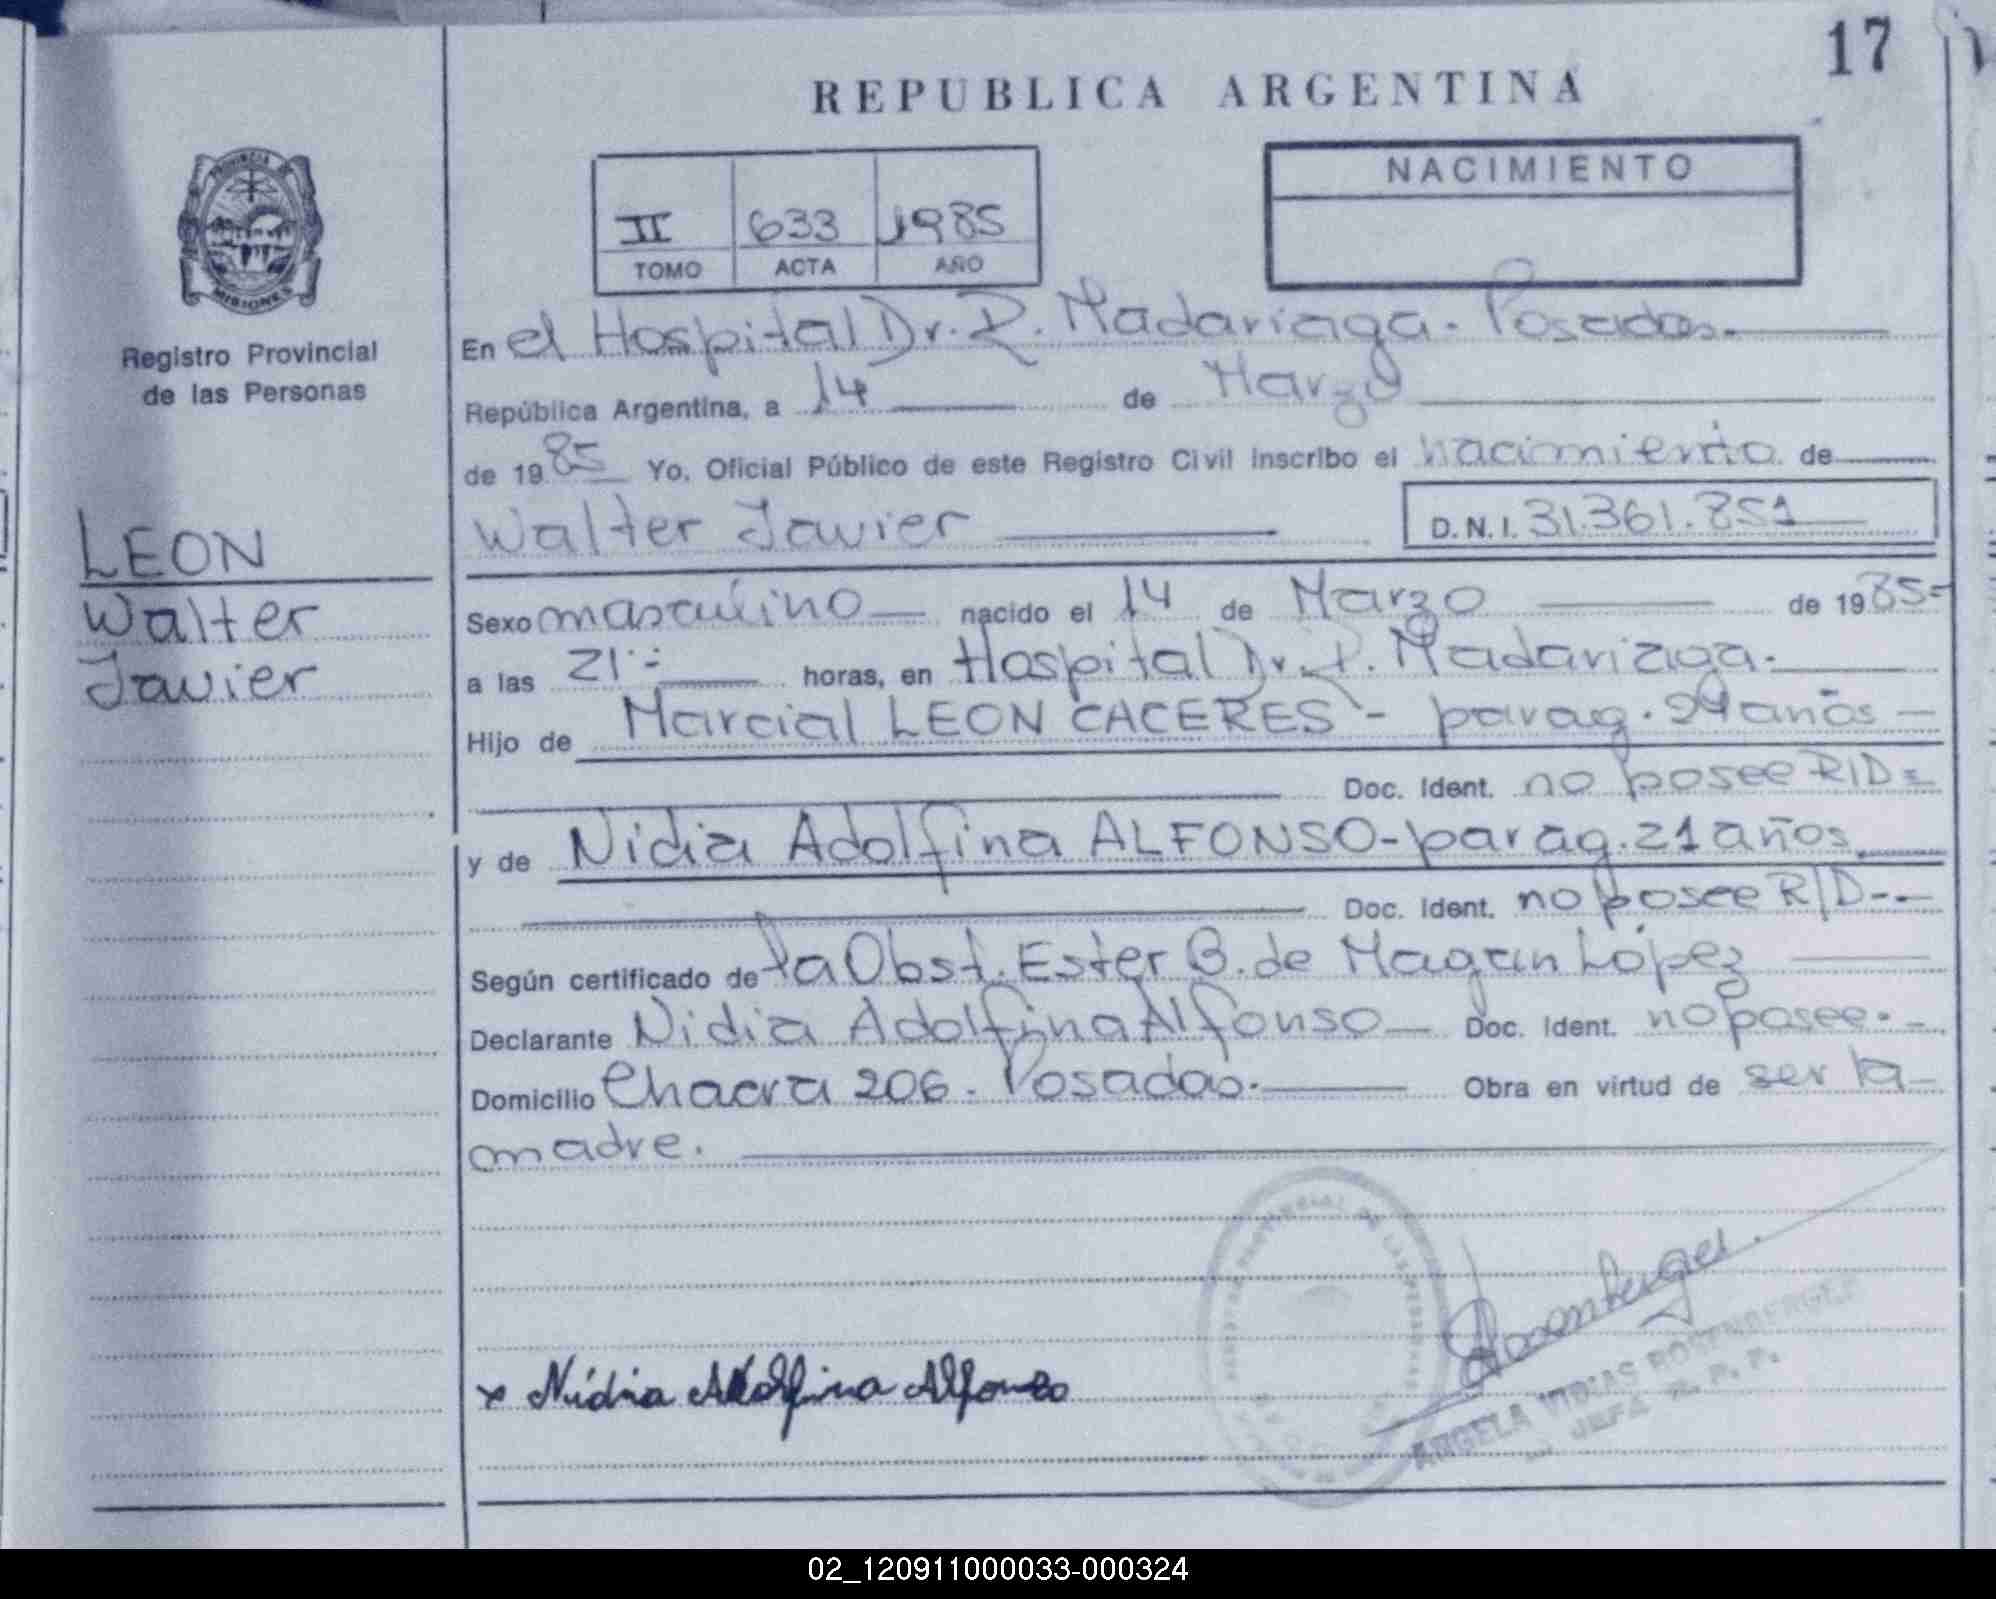 17
REPUBLICA ARGENTINA
PROVINCIA DE
MISIONES
Registro Provincial
de las Personas
II 633 1985
TOMO ACTA AÑO
NACIMIENTO
En el Hospital Dr. R. Madariaga. Posadas.
República Argentina, a 14 de Marzo
de 1985 Yo, Oficial Público de este Registro Civil inscribo el nacimiento de
LEON
Walter
Javier
Walter Javier D.N.I. 31.361.851
Sexo masculino nacido el 14 de Marzo de 1985=
a las 21:- horas, en Hospital Dr. R. Madariaga.
Hijo de Marcial LEON CACERES - parag. 24 años
Doc. Ident. no posee R/D=
y de Nidia Adolfina ALFONSO - parag. 21 años.
Doc. Ident. no posee R/D--
Según certificado de la Obst. Ester B. de Magan López
Declarante Nidia Adolfina Alfonso Doc. Ident. no posee.-
Domicilio Chacra 206. Posadas. Obra en virtud de ser la
madre.
x Nidia Adolfina Alfonso
ANGELA VIDIAS ROSENBERGER
JEFA R. P. P.
02_120911000033-000324